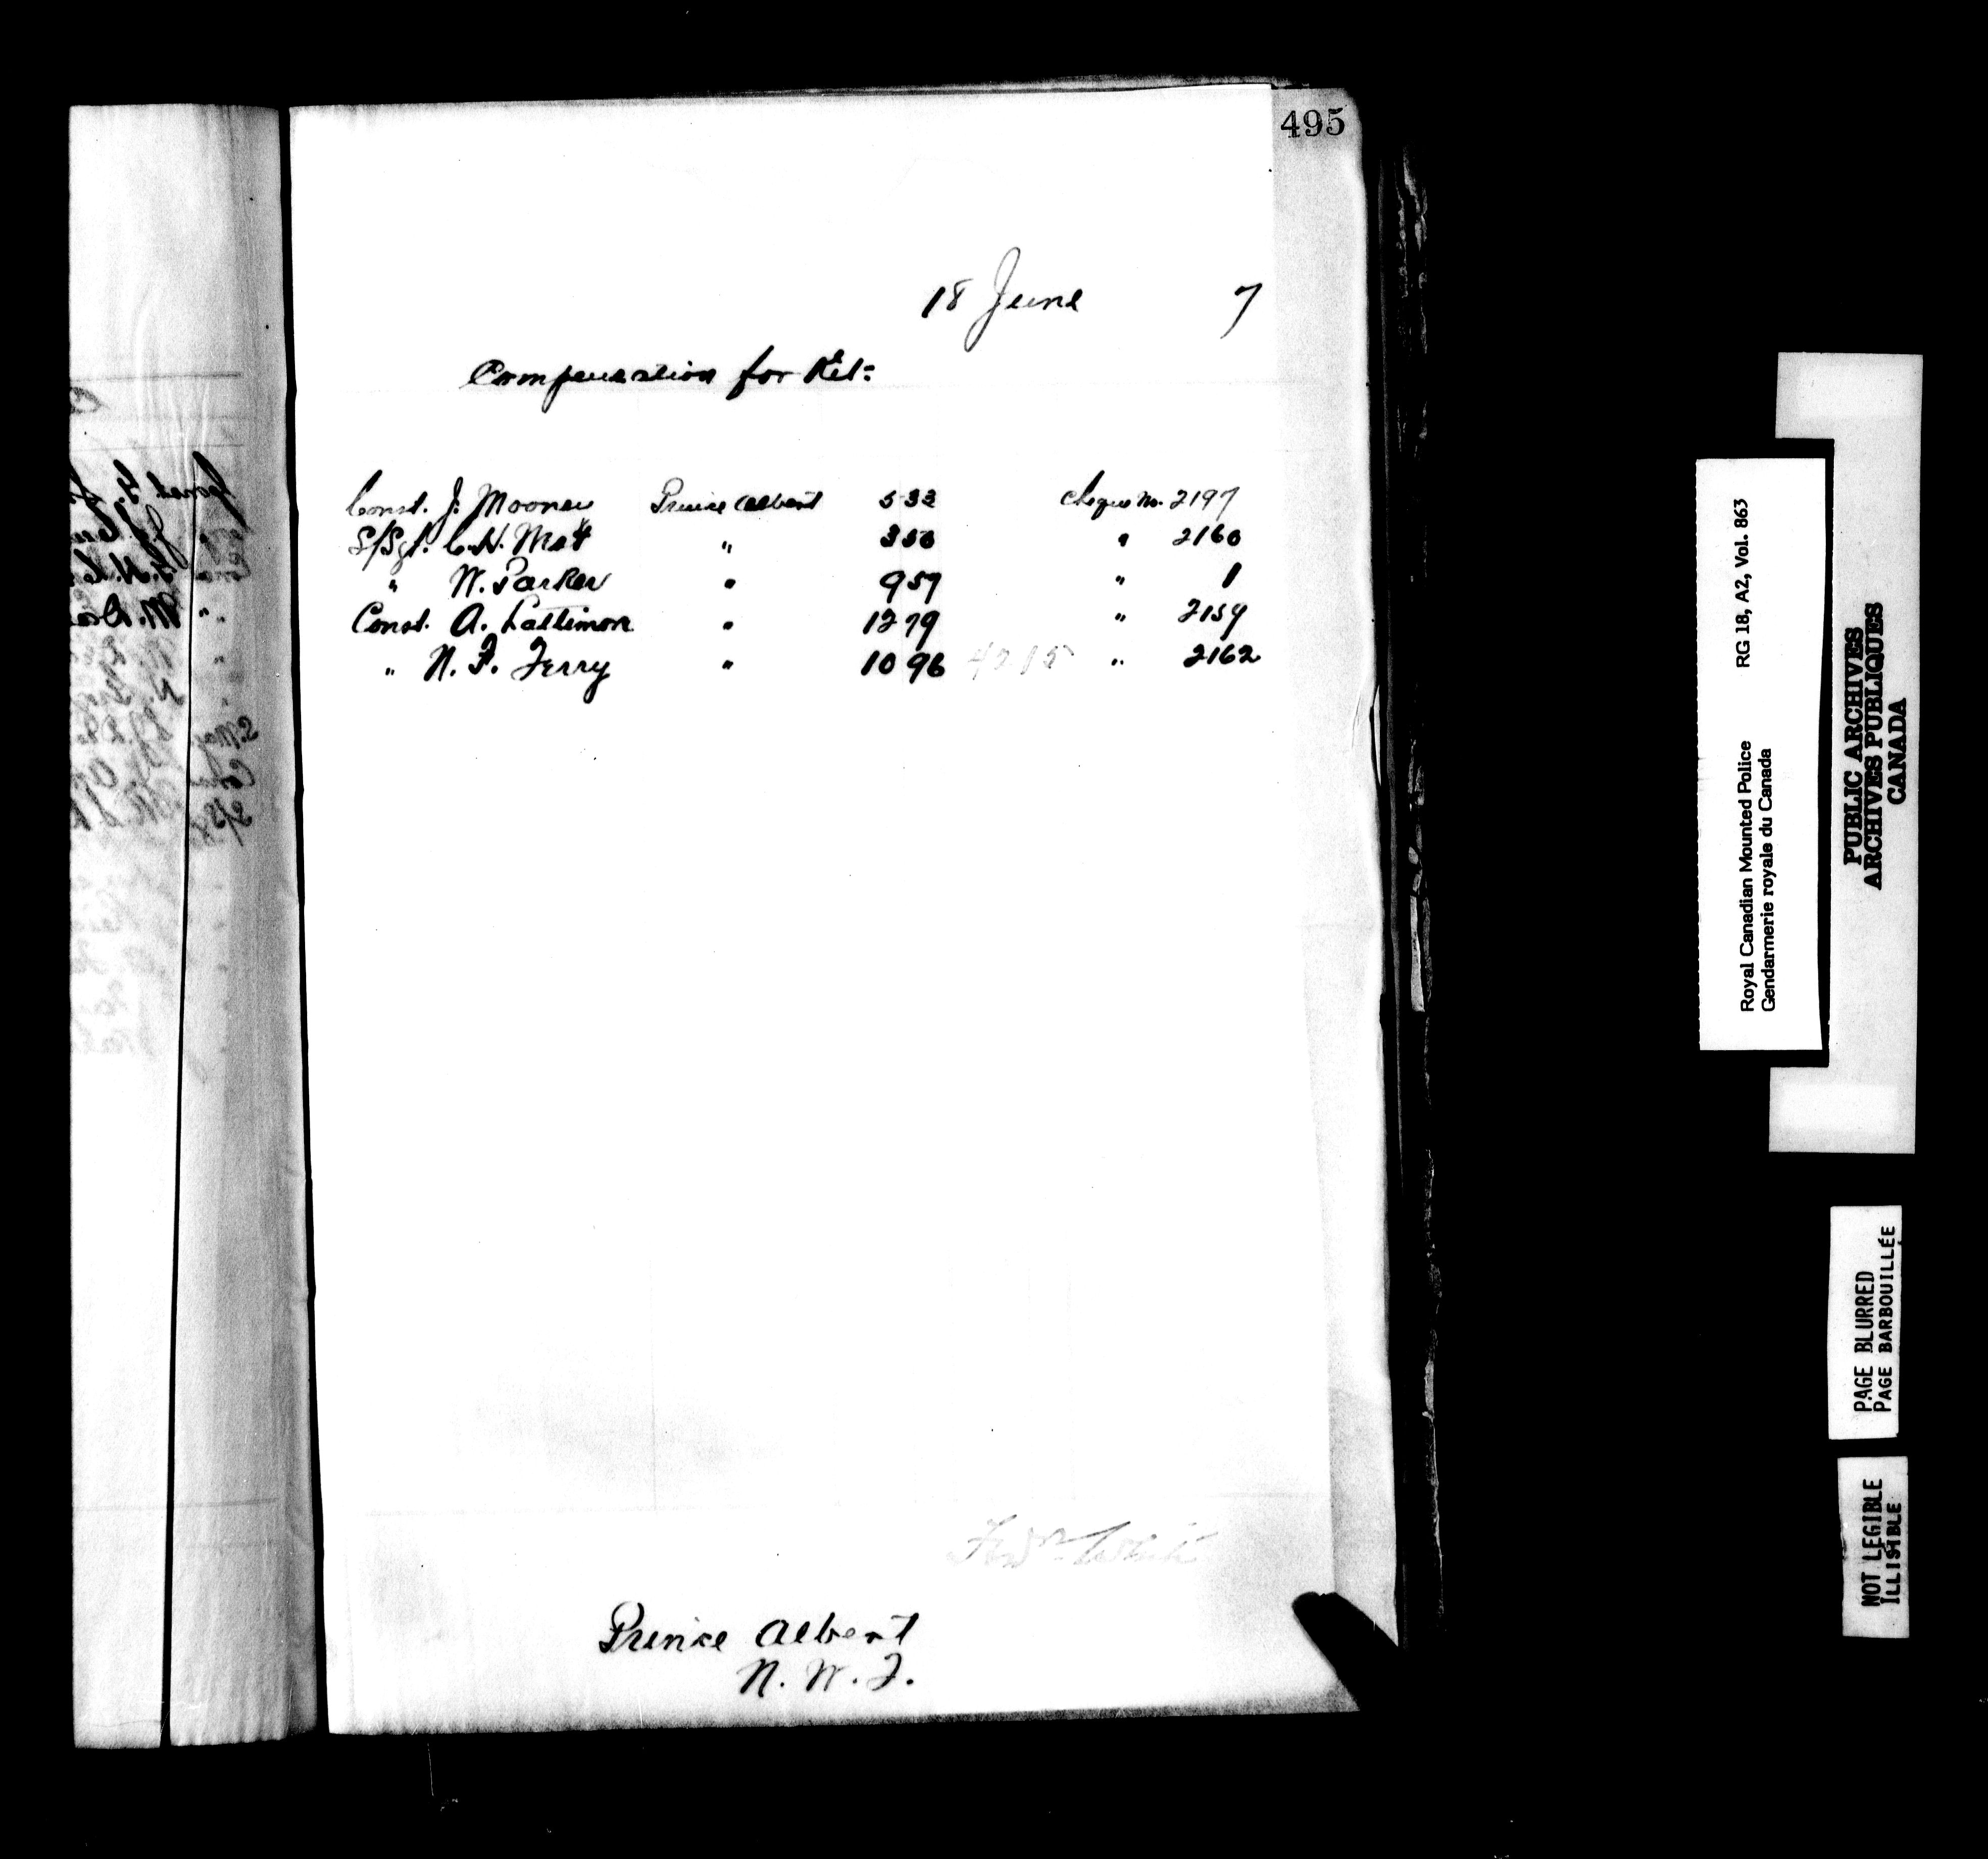 495
18 June 7
Compensation for Kit:
Const. J. Mooney Prince Albert 5 33 Cheque No. 2197
S/Sgt. C.H. " 3 50 " 2160
" W. Parker " 9 57 " 1
Const. A. Lattimore " 12 79 " 2159
" N. F. Terry " 10 96 42 15 " 2162
Fred White
Prince Albert
N. W. T.
Royal Canadian Mounted Police RG 18, A2, Vol. 863
Gendarmerie royale du Canada
PUBLIC ARCHIVES
ARCHIVES PUBLIQUES
CANADA
PAGE BLURRED
PAGE BARBOUILLÉE
NOT LEGIBLE
ILLISIBLE